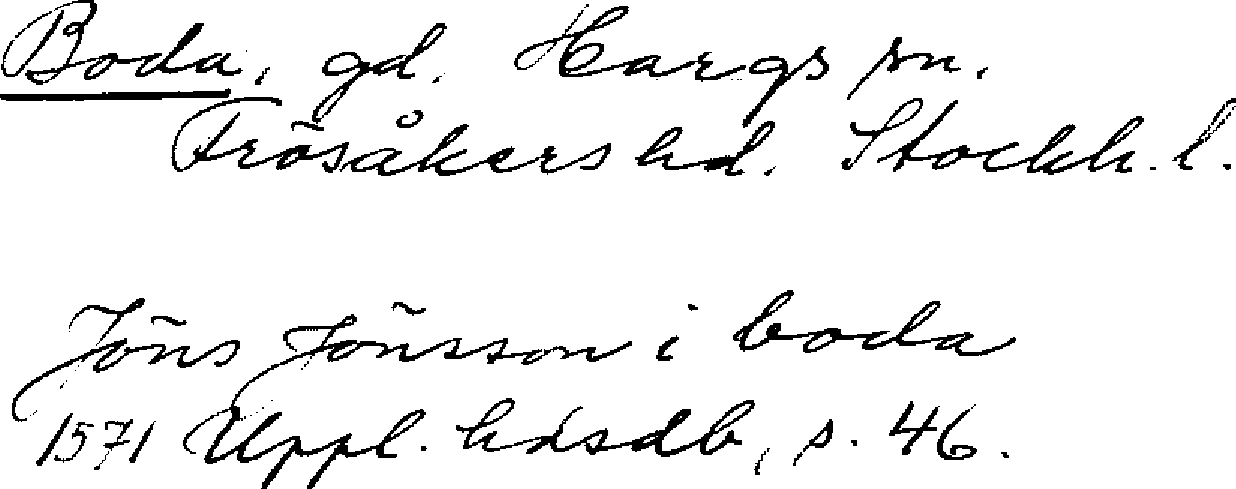 Boda, gd. Hargs sn.
Frösåkers hd. Stockh. l.
Jöns Jönsson i boda
1571 Uppl. hdsdb, s. 46.